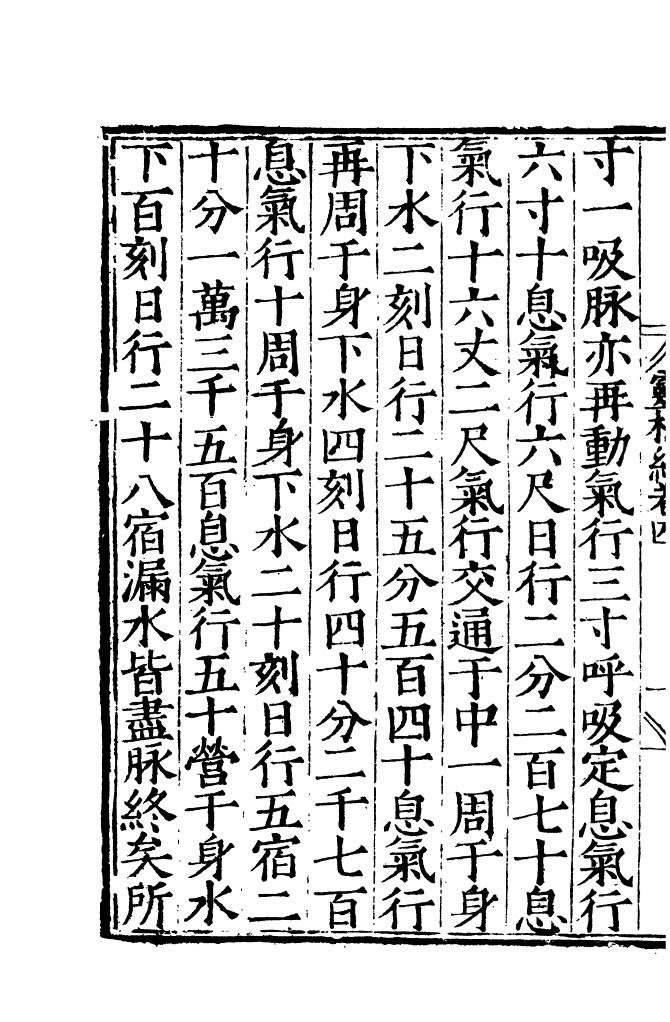 靈樞經卷四
一
寸一吸脉亦再動氣行三寸呼吸定息氣行
六寸十息氣行六尺日行二分二百七十息
氣行十六丈二尺氣行交通于中一周于身
下水二刻日行二十五分五百四十息氣行
再周于身下水四刻日行四十分二千七百
息氣行十周于身下水二十刻日行五宿二
十分一萬三千五百息氣行五十營于身水
下百刻日行二十八宿漏水皆盡脉終矣所